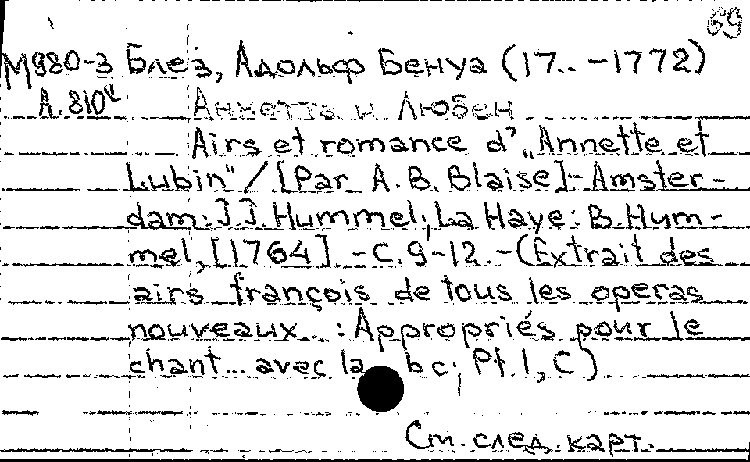 69
М980-3 Блез, Адольф Бенуа (17.. -1772)
А.810ч Аннетта и Любен
Airs et romance d' „Annette et
Lubin" / [Par A. B. Blaise]- Amster-
dam: J. J. Hummel; La Haye: B. Hum-
mel, [1764]. - С. 9-12. - (Extrait des
airs françois de tous les operas
nouveaux... : Appropriés pour le
chant... avec la b c; Pt. 1, C)
См. след. карт.